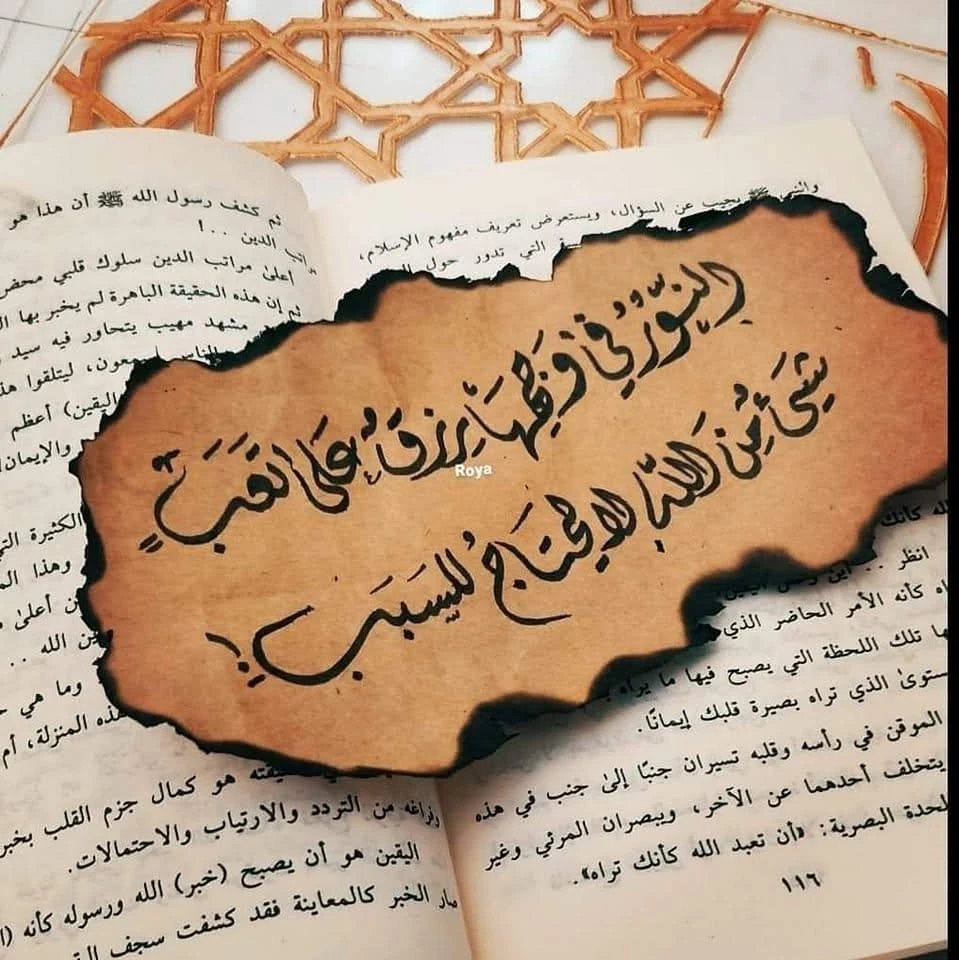 ثم كشف رسول الله ﷺ أن هذا هو
مراتب الدين ..!
أعلىٰ مراتب الدين سلوك قلبي محض
ثم إن هذه الحقيقة الباهرة لم يخبر بها
مشهد مهيب يتحاور فيه سيد
ليتلقوا
اليقين) أعظم
والإيمان
الكثيرة
وهذا
أعلىٰ
الله ..
وما هي
هذه المنزلة، أم
هو كمال جزم القلب
وفراغه من التردد والارتياب والاحتمالات.
اليقين هو أن يصبح (خبر) الله ورسوله كأنه
صار الخبر كالمعاينة فقد كشفت سجف
والنبي ﷺ يجيب عن السؤال، ويستعرض تعريف مفهوم الإسلام،
التي تدور حول
النُّورُ فِي وَجهِهَا يرزقُ عَلى تعَبَ
شيئ مِن اللّه لا يحتَاجُ للسَبَبِ !
Roya
كأنك
انظر ..
كأنه الأمر الحاضر الذي
تلك اللحظة التي يصبح فيها ما يراه
الذي تراه بصيرة قلبك إيمانًا.
الموقن في رأسه وقلبه تسيران جنبًا إلىٰ جنب في هذه
يتخلف أحدهما عن الآخر، ويبصران المرئي وغير
البصرية: «أن تعبد الله كأنك تراه».
١١٦